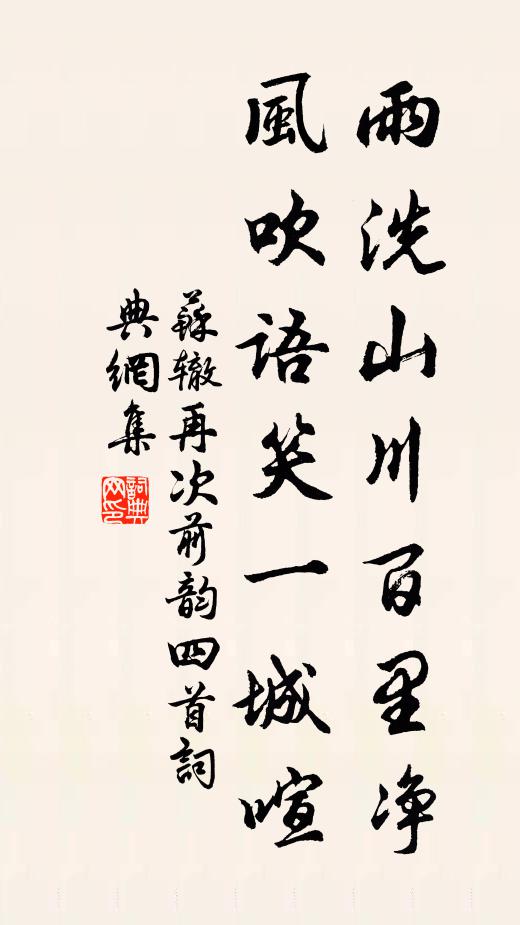 雨洗山川百里净
風吹語笑一城喧
蘇辙再次前韵四首詞
典網集
詞典
网印